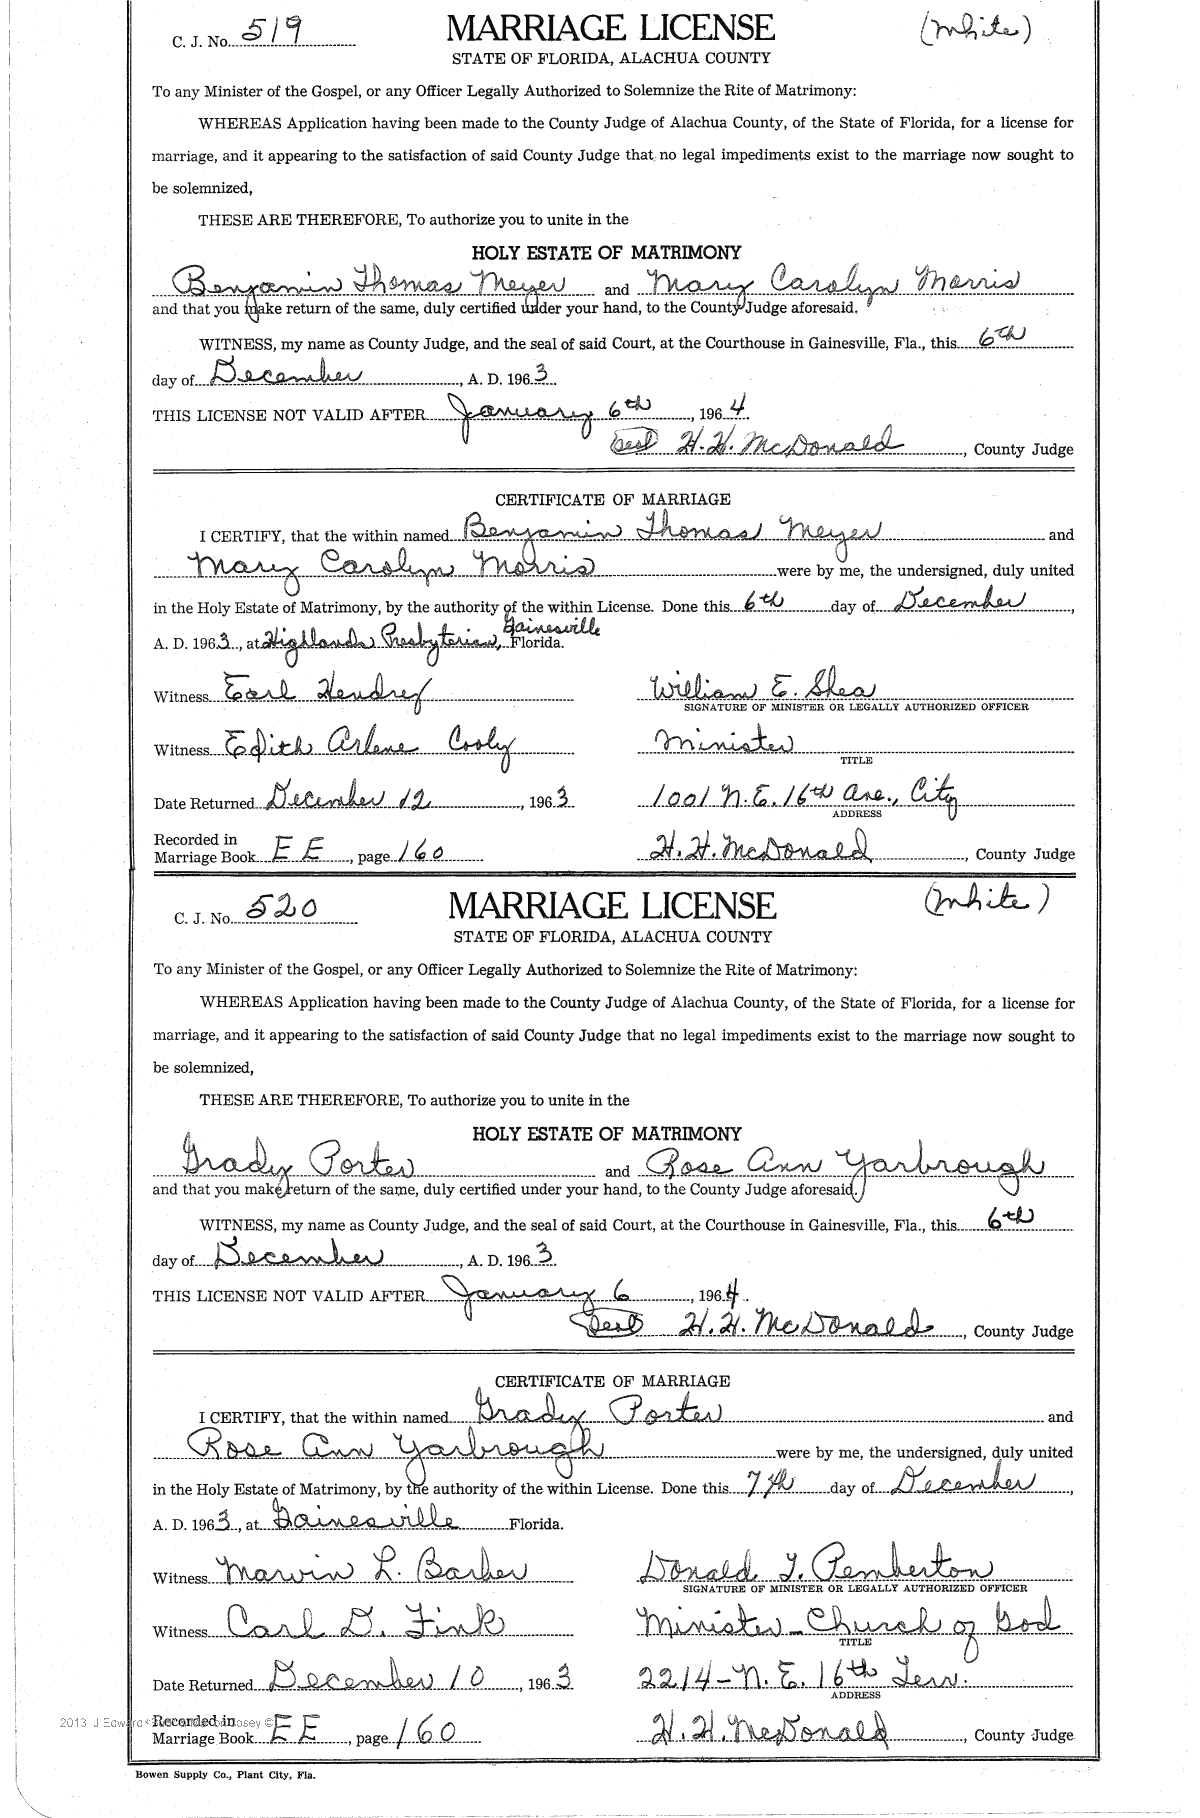 C. J. No. 519 MARRIAGE LICENSE (White)
STATE OF FLORIDA, ALACHUA COUNTY
To any Minister of the Gospel, or any Officer Legally Authorized to Solemnize the Rite of Matrimony:
WHEREAS Application having been made to the County Judge of Alachua County, of the State of Florida, for a license for
marriage, and it appearing to the satisfaction of said County Judge that no legal impediments exist to the marriage now sought to
be solemnized,
THESE ARE THEREFORE, To authorize you to unite in the
HOLY ESTATE OF MATRIMONY
Benjamin Thomas Meyer and Mary Carolyn Morris
and that you make return of the same, duly certified under your hand, to the County Judge aforesaid.
WITNESS, my name as County Judge, and the seal of said Court, at the Courthouse in Gainesville, Fla., this 6th
day of December, A. D. 1963.
THIS LICENSE NOT VALID AFTER January 6th, 1964.
Seal H. H. McDonald, County Judge
CERTIFICATE OF MARRIAGE
I CERTIFY, that the within named Benjamin Thomas Meyer and
Mary Carolyn Morris were by me, the undersigned, duly united
in the Holy Estate of Matrimony, by the authority of the within License. Done this 6th day of December,
A. D. 1963, at Highlands Presbyterian, Gainesville Florida.
Witness Earl Hendrey William E. Shea
SIGNATURE OF MINISTER OR LEGALLY AUTHORIZED OFFICER
Witness Edith Arlene Cooly Minister
TITLE
Date Returned December 12, 1963 1001 N.E. 16th Ave., City
ADDRESS
Recorded in
Marriage Book EE, page 160 H. H. McDonald, County Judge
C. J. No. 520 MARRIAGE LICENSE (White)
STATE OF FLORIDA, ALACHUA COUNTY
To any Minister of the Gospel, or any Officer Legally Authorized to Solemnize the Rite of Matrimony:
WHEREAS Application having been made to the County Judge of Alachua County, of the State of Florida, for a license for
marriage, and it appearing to the satisfaction of said County Judge that no legal impediments exist to the marriage now sought to
be solemnized,
THESE ARE THEREFORE, To authorize you to unite in the
HOLY ESTATE OF MATRIMONY
Grady Porter and Rose Ann Yarbrough
and that you make return of the same, duly certified under your hand, to the County Judge aforesaid.
WITNESS, my name as County Judge, and the seal of said Court, at the Courthouse in Gainesville, Fla., this 6th
day of December, A. D. 1963.
THIS LICENSE NOT VALID AFTER January 6, 1964.
Seal H. H. McDonald, County Judge
CERTIFICATE OF MARRIAGE
I CERTIFY, that the within named Grady Porter and
Rose Ann Yarbrough were by me, the undersigned, duly united
in the Holy Estate of Matrimony, by the authority of the within License. Done this 7th day of December,
A. D. 1963, at Gainesville Florida.
Witness Marvin L. Barber Donald T. Pemberton
SIGNATURE OF MINISTER OR LEGALLY AUTHORIZED OFFICER
Witness Carl D. Fink Minister - Church of God
TITLE
Date Returned December 10, 1963 2214 - N. E. 16th Terr.
ADDRESS
2013 J Edward
Recorded in
Marriage Book EE, page 160 H. H. McDonald, County Judge
Bowen Supply Co., Plant City, Fla.